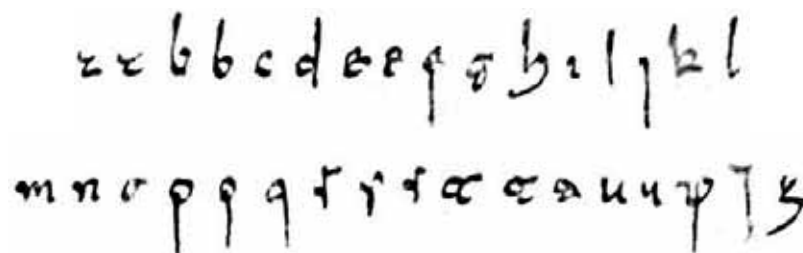 a a b b c d e e f g h i l j k l
m n o p p q r r r t t a u u p ⁊ z